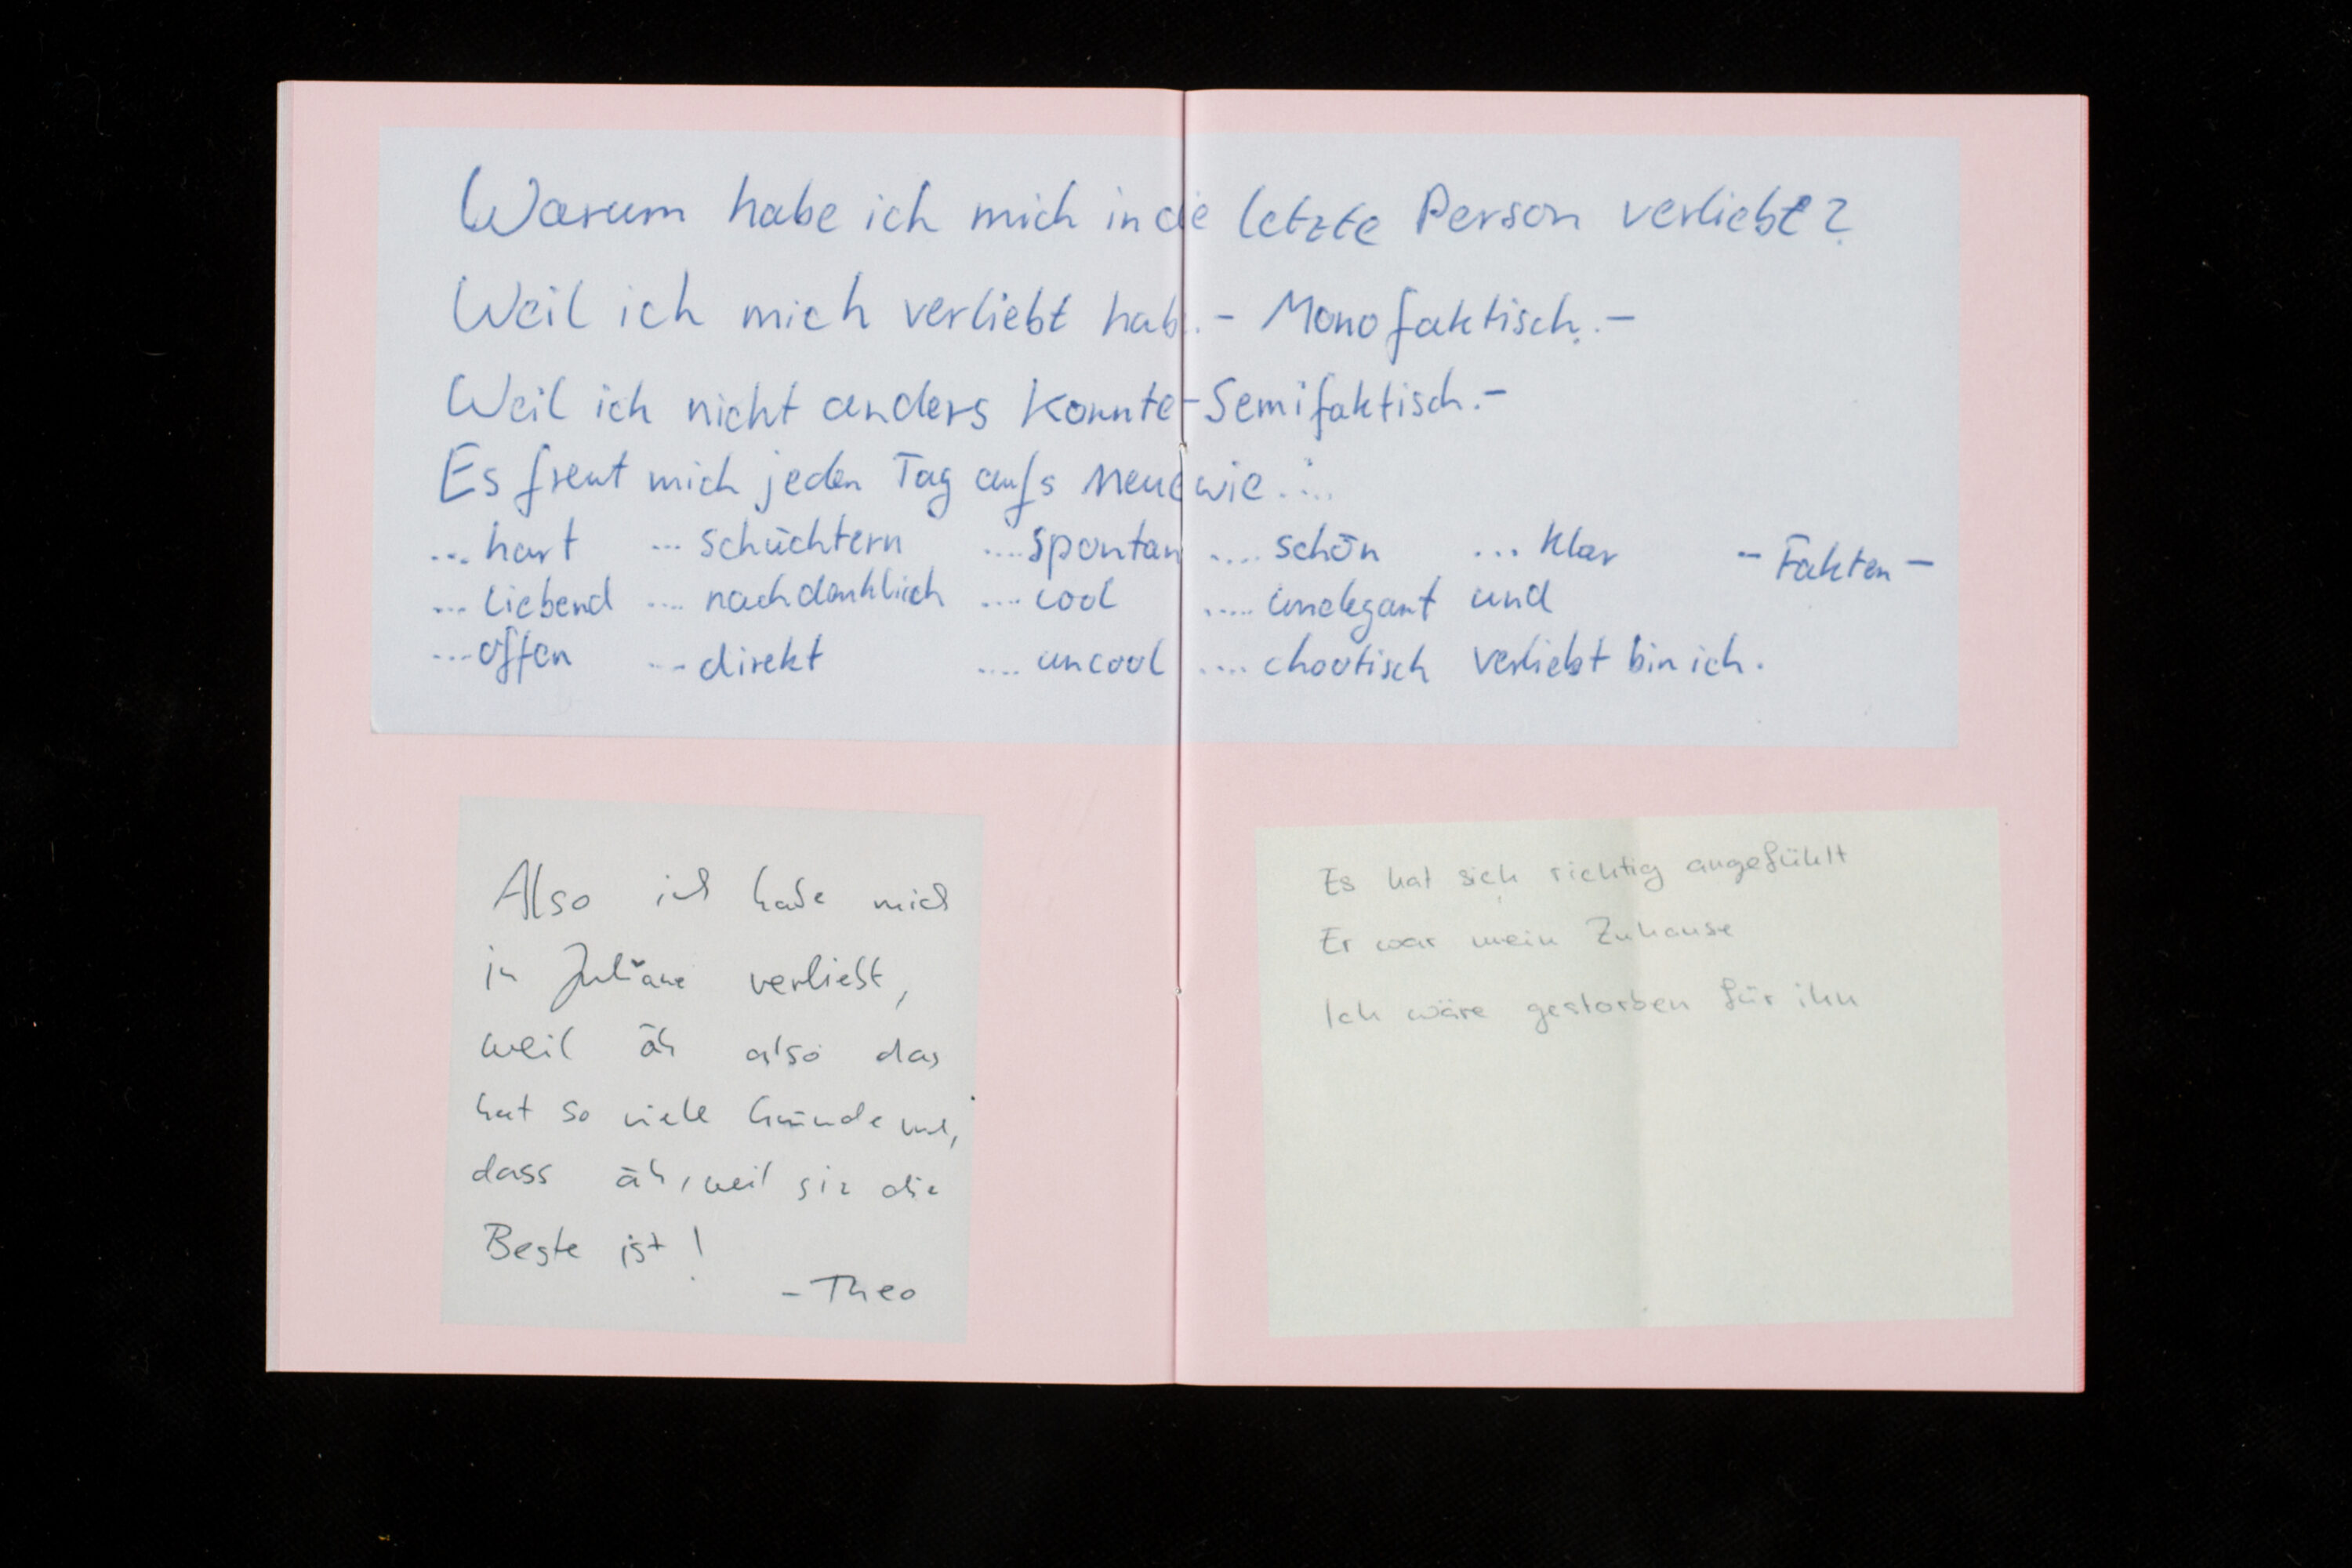 Warum habe ich mich in die letzte Person verliebt?
Weil ich mich verliebt hab.- Monofaktisch.-
Weil ich nicht anders konnte-Semifaktisch.-
Es freut mich jeden Tag aufs Neue wie....
... hart ... schüchtern .... spontan .... schön ... klar - Fakten -
... liebend .... nachdenklich .... cool ..... unelegant und
... offen ... direkt .... uncool .... chaotisch verliebt bin ich.
Also ich habe mich
in Juliane verliebt,
weil äh also das
hat so viele Gründe und,
dass äh, weil sie die
Beste ist!
- Theo
Es hat sich richtig angefühlt
Er war mein Zuhause
Ich wäre gestorben für ihn